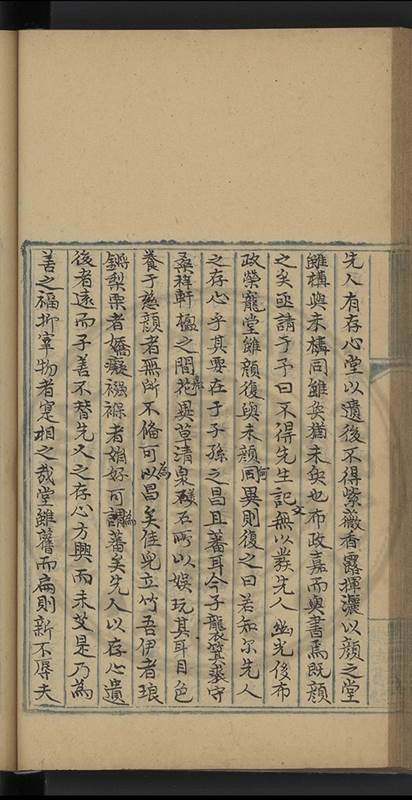 先人有存心堂以遺後不得紫薇香露揮灑以顏之堂
雖構與未構同雖矣猶未矣也布政嘉而與書焉既顏
之矣亟請于予曰不得先生記文無以發先人幽光後布
政榮寵堂雖顏復與未顏同何異則復之曰若知尔先人
之存心乎其要在于子孫之昌且蕃耳今子襲箕裘守
桑梓軒楹之間花卉異草清泉石所以娛玩其耳目色
養于慈顏者無所不備可為以昌矣佳兒立竹吾伊者琅
鏘梨栗者嬌癡襁褓者娟好可謂為蕃矣先人以存心遺
後者遠而子善不替先人之存心方興而未艾是乃為
善之福抑宰物者寔相之哉堂雖舊而扁則新不辱夫